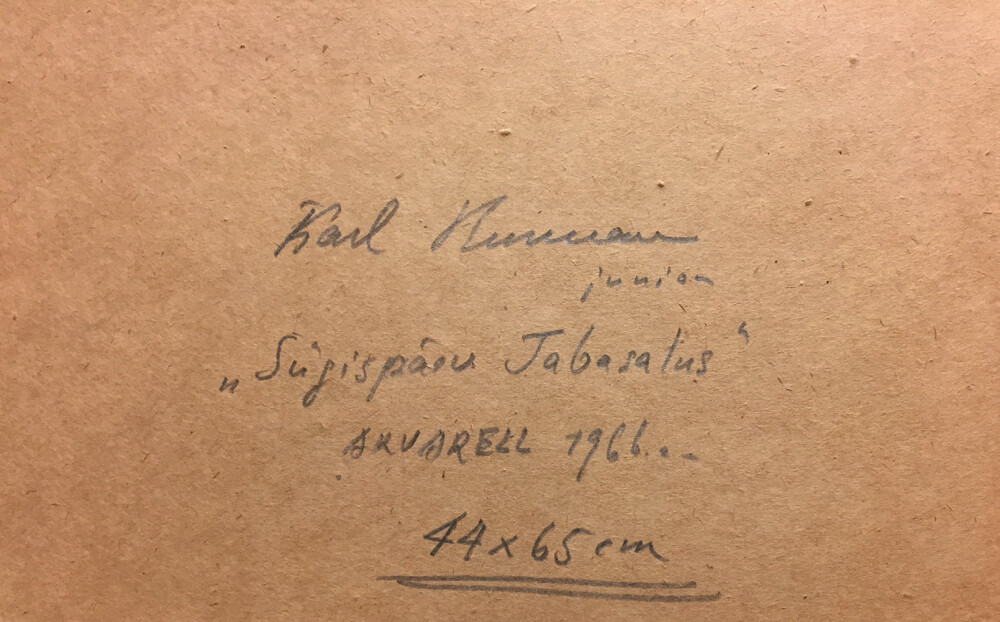 Karl Burman
junior
„Sügispäev Tabasalus“
AKVARELL 1966..
44x65cm